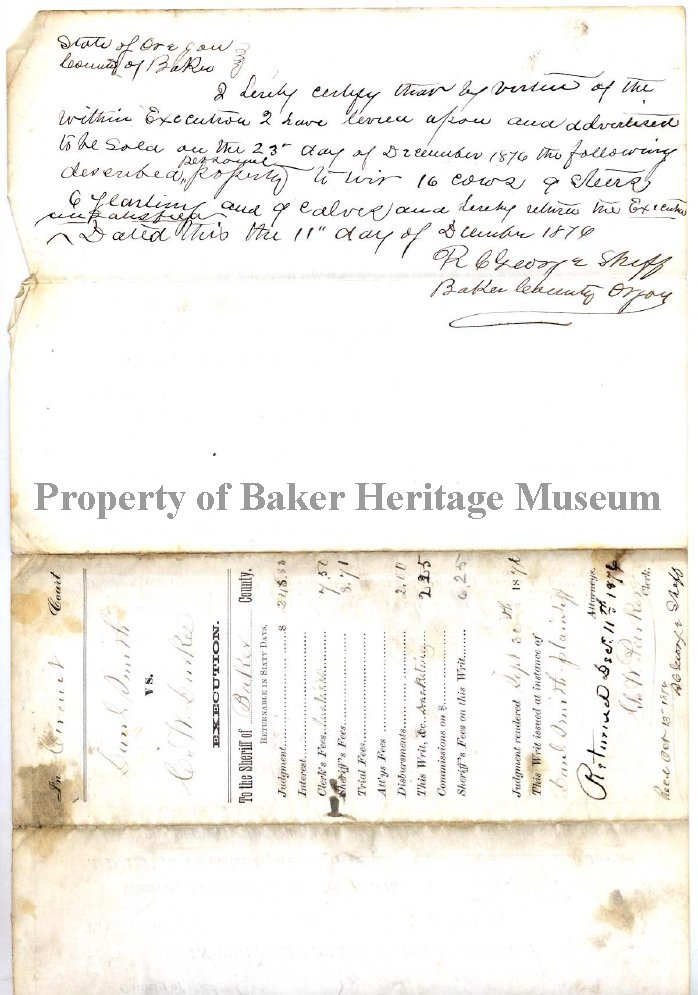 State of Oregon
County of Baker
I hereby certify that by virtue of the
within Execution I have levied upon and advertised
to be Sold on the 23d day of December 1876 the following
described personal property to wit 16 cows 9 steers
6 yearlings and 9 calves and hereby return the Execution
unsatisfied
Dated this the 11" day of December 1876
R C George Shff
Baker County Oregon
Property of Baker Heritage Museum
In Circuit Court
Saml Smith
vs.
C. W.
EXECUTION.
To the Sheriff of Baker County.
RETURNABLE IN SIXTY DAYS.
Judgment, $ 248.33
Interest,
Clerk's Fees, 7.50
Sheriff's Fees, 8.71
Trial Fees,
Att'ys Fees
Disbursements, 2.00
This Writ, &c. 2.25
Commissions on $
Sheriff's Fees on this Writ, 6.25
Judgment rendered Sept 30th 1876
This Writ issued at instance of
Saml Smith plaintiff
Attorneys.
Returned Dec. 11th 1876
Clerk.
Recd Oct 18th 1876
R C George Shff